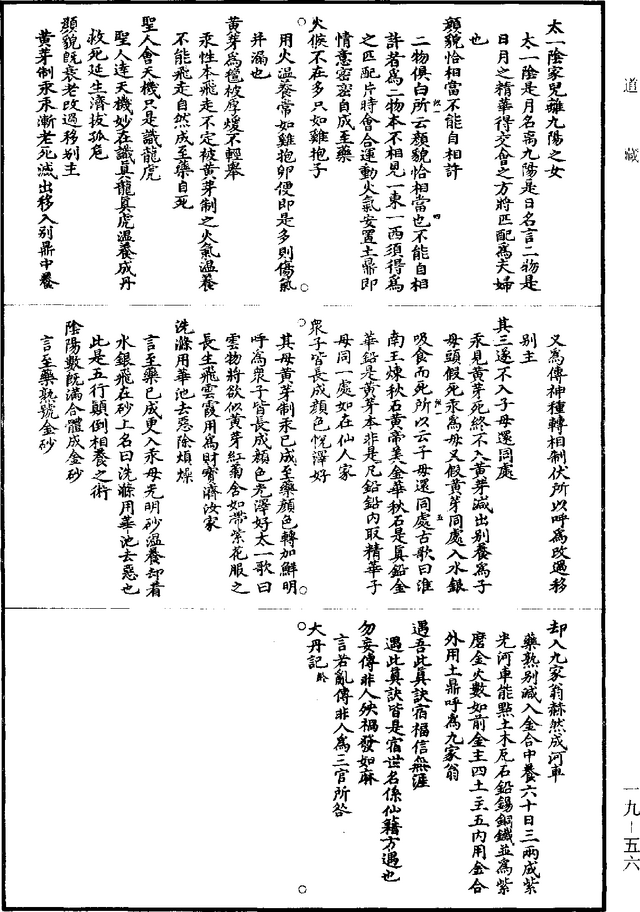 道藏
太一陰家兒離九陽之女
太一陰是月名离九陽是日名言二物是
日月之精華得交會之方將匹配為夫婦
也
顏貌恰相當不能自相許
二物俱白所云顏貌恰相當也不能自相
許者為二物本不相見一東一西須得為
之匹配片時會合運動火氣安置土鼎即
情意密密自成至藥
火候不在多只如雞抱子
用火溫養常如雞抱卵便即是多則傷氣
并漏也
黃芽為㲉被厚煖不輕舉
汞性本飛走不定被黃芽制之火氣溫養
不能飛走自然成至藥自死
聖人會天機只是識龍虎
聖人達天機妙在識真龍真虎溫養成丹
救死延生濟拔孤危
顏貌既衰老改過移別主
黃芽制汞汞漸老死減出移入別鼎中養
又為傳神種轉相制伏所以呼為改過移
別主
其三遂不入子母還同處
汞見黃芽死終不入黃芽減出別養為子
母頭假死汞為母又假黃芽同處入水銀
吸食而死所以云子母還同處古歌曰淮
南王煉秋石黃帝美金華秋石是真鉛金
華鉛是黃芽本非是凡鉛鉛內取精華子
母同一處如在仙人家
眾子皆長成顏色悅澤好
其母黃芽制汞已成至藥顏色轉加鮮明
呼為眾子皆長成顏色光澤好太一歌曰
雲物將欲似黃芽紅菊含如帶紫花服之
長生飛雲霞用為財寶濟汝家
洗滌用華池去惡除煩燥
言至藥已成更入汞母光明砂溫養却着
水銀飛在砂上名曰洗滌用華池去惡也
此是五行顛倒相養之術
陰陽數既滿合體成金砂
言至藥熟號金砂
却入九家翁赫然成河車
藥熟別減入金合中養六十日三兩成紫
光河車能點土木瓦石鉛錫銅鐵並為紫
磨金火數如前金主四土主五內用金合
外用土鼎呼為九家翁
遇吾此真訣宿福信無涯
遇此真訣皆是宿世名係仙籍方遇也
勿妄傳非人殃禍發如麻
言若亂傳非人為三官所咎
大丹記
一九–五六